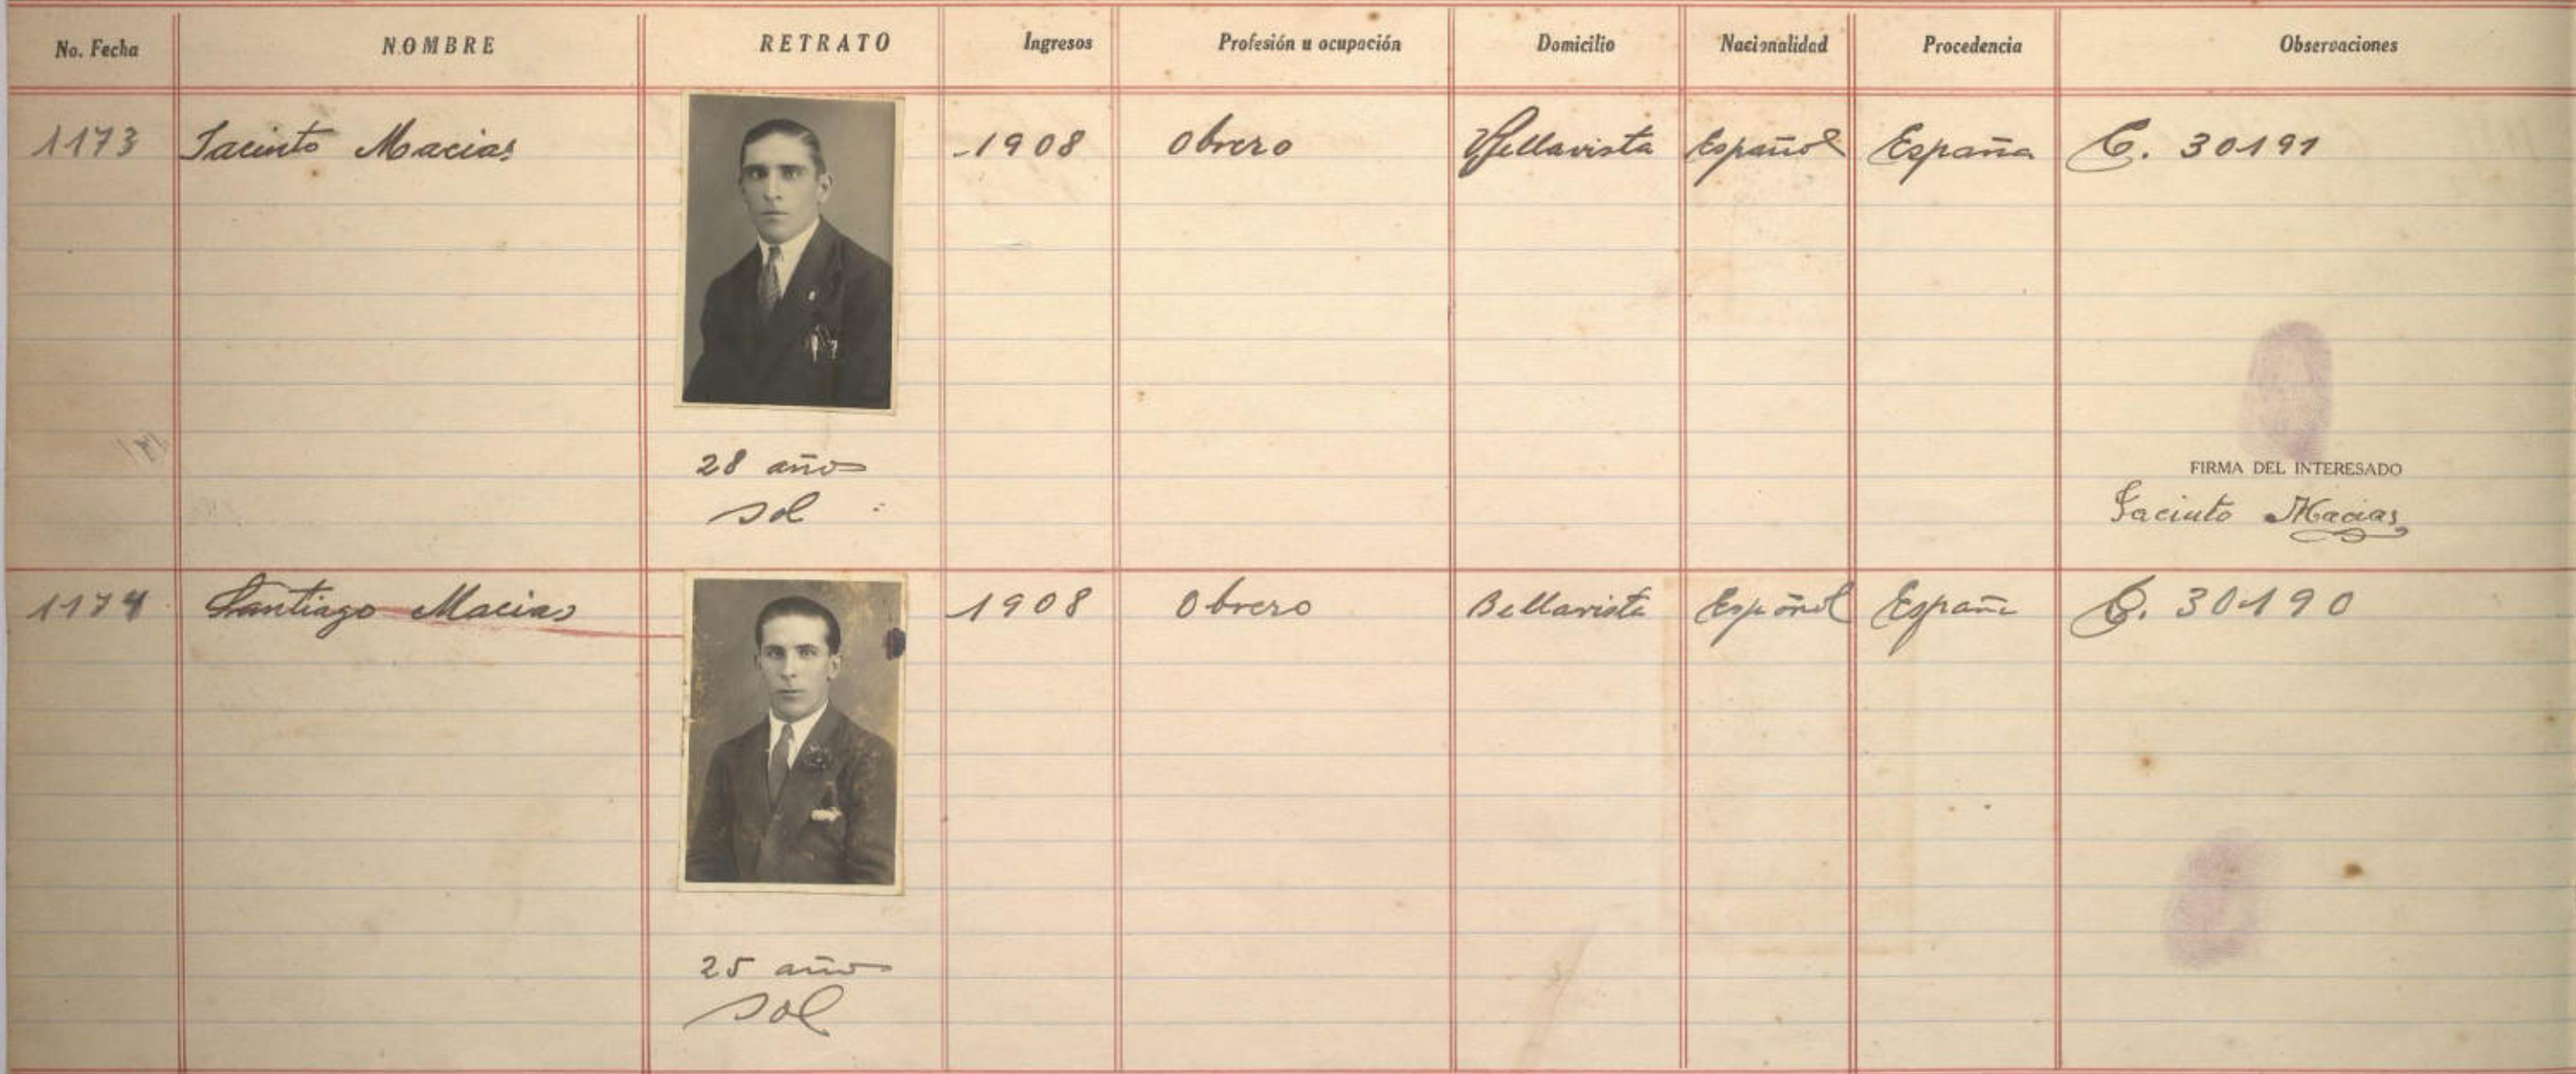 No. Fecha NOMBRE RETRATO Ingresos Profesión u ocupación Domicilio Nacionalidad Procedencia Observaciones
1173 Jacinto Macias 1908 Obrero Bellavista Español España C. 30191
28 años
sol
FIRMA DEL INTERESADO
Jacinto Macias
1174 Santiago Macias 1908 Obrero Bellavista Español España C. 30190
25 años
sol